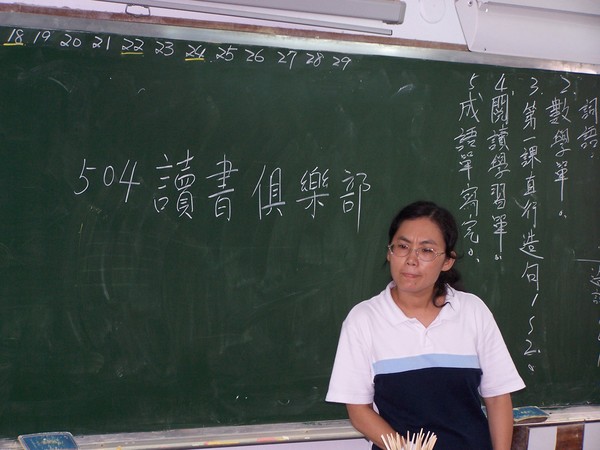 18 19 20 21 22 23 24 25 26 27 28 29
504 讀書俱樂部
詞語:
2. 數學單。
3. 第一課直行造句1、2。
4. 閱讀學習單。
5. 成語單寫完。